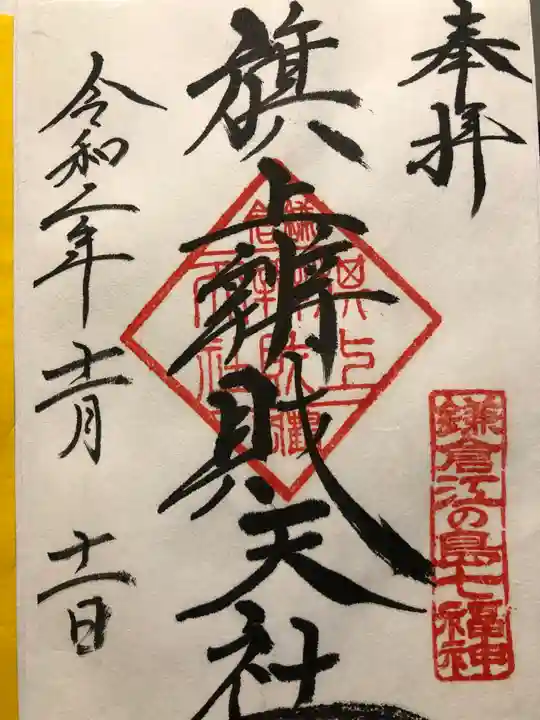 奉拝
鎌倉江の島七福神
旗上辨財天社
令和二年十二月十一日